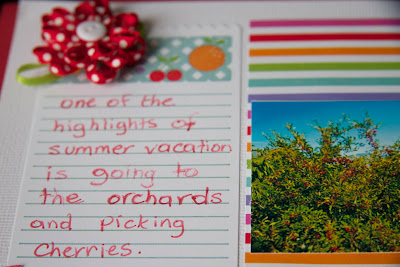 one of the
highlights of
summer vacation
is going to
the orchards
and picking
cherries.